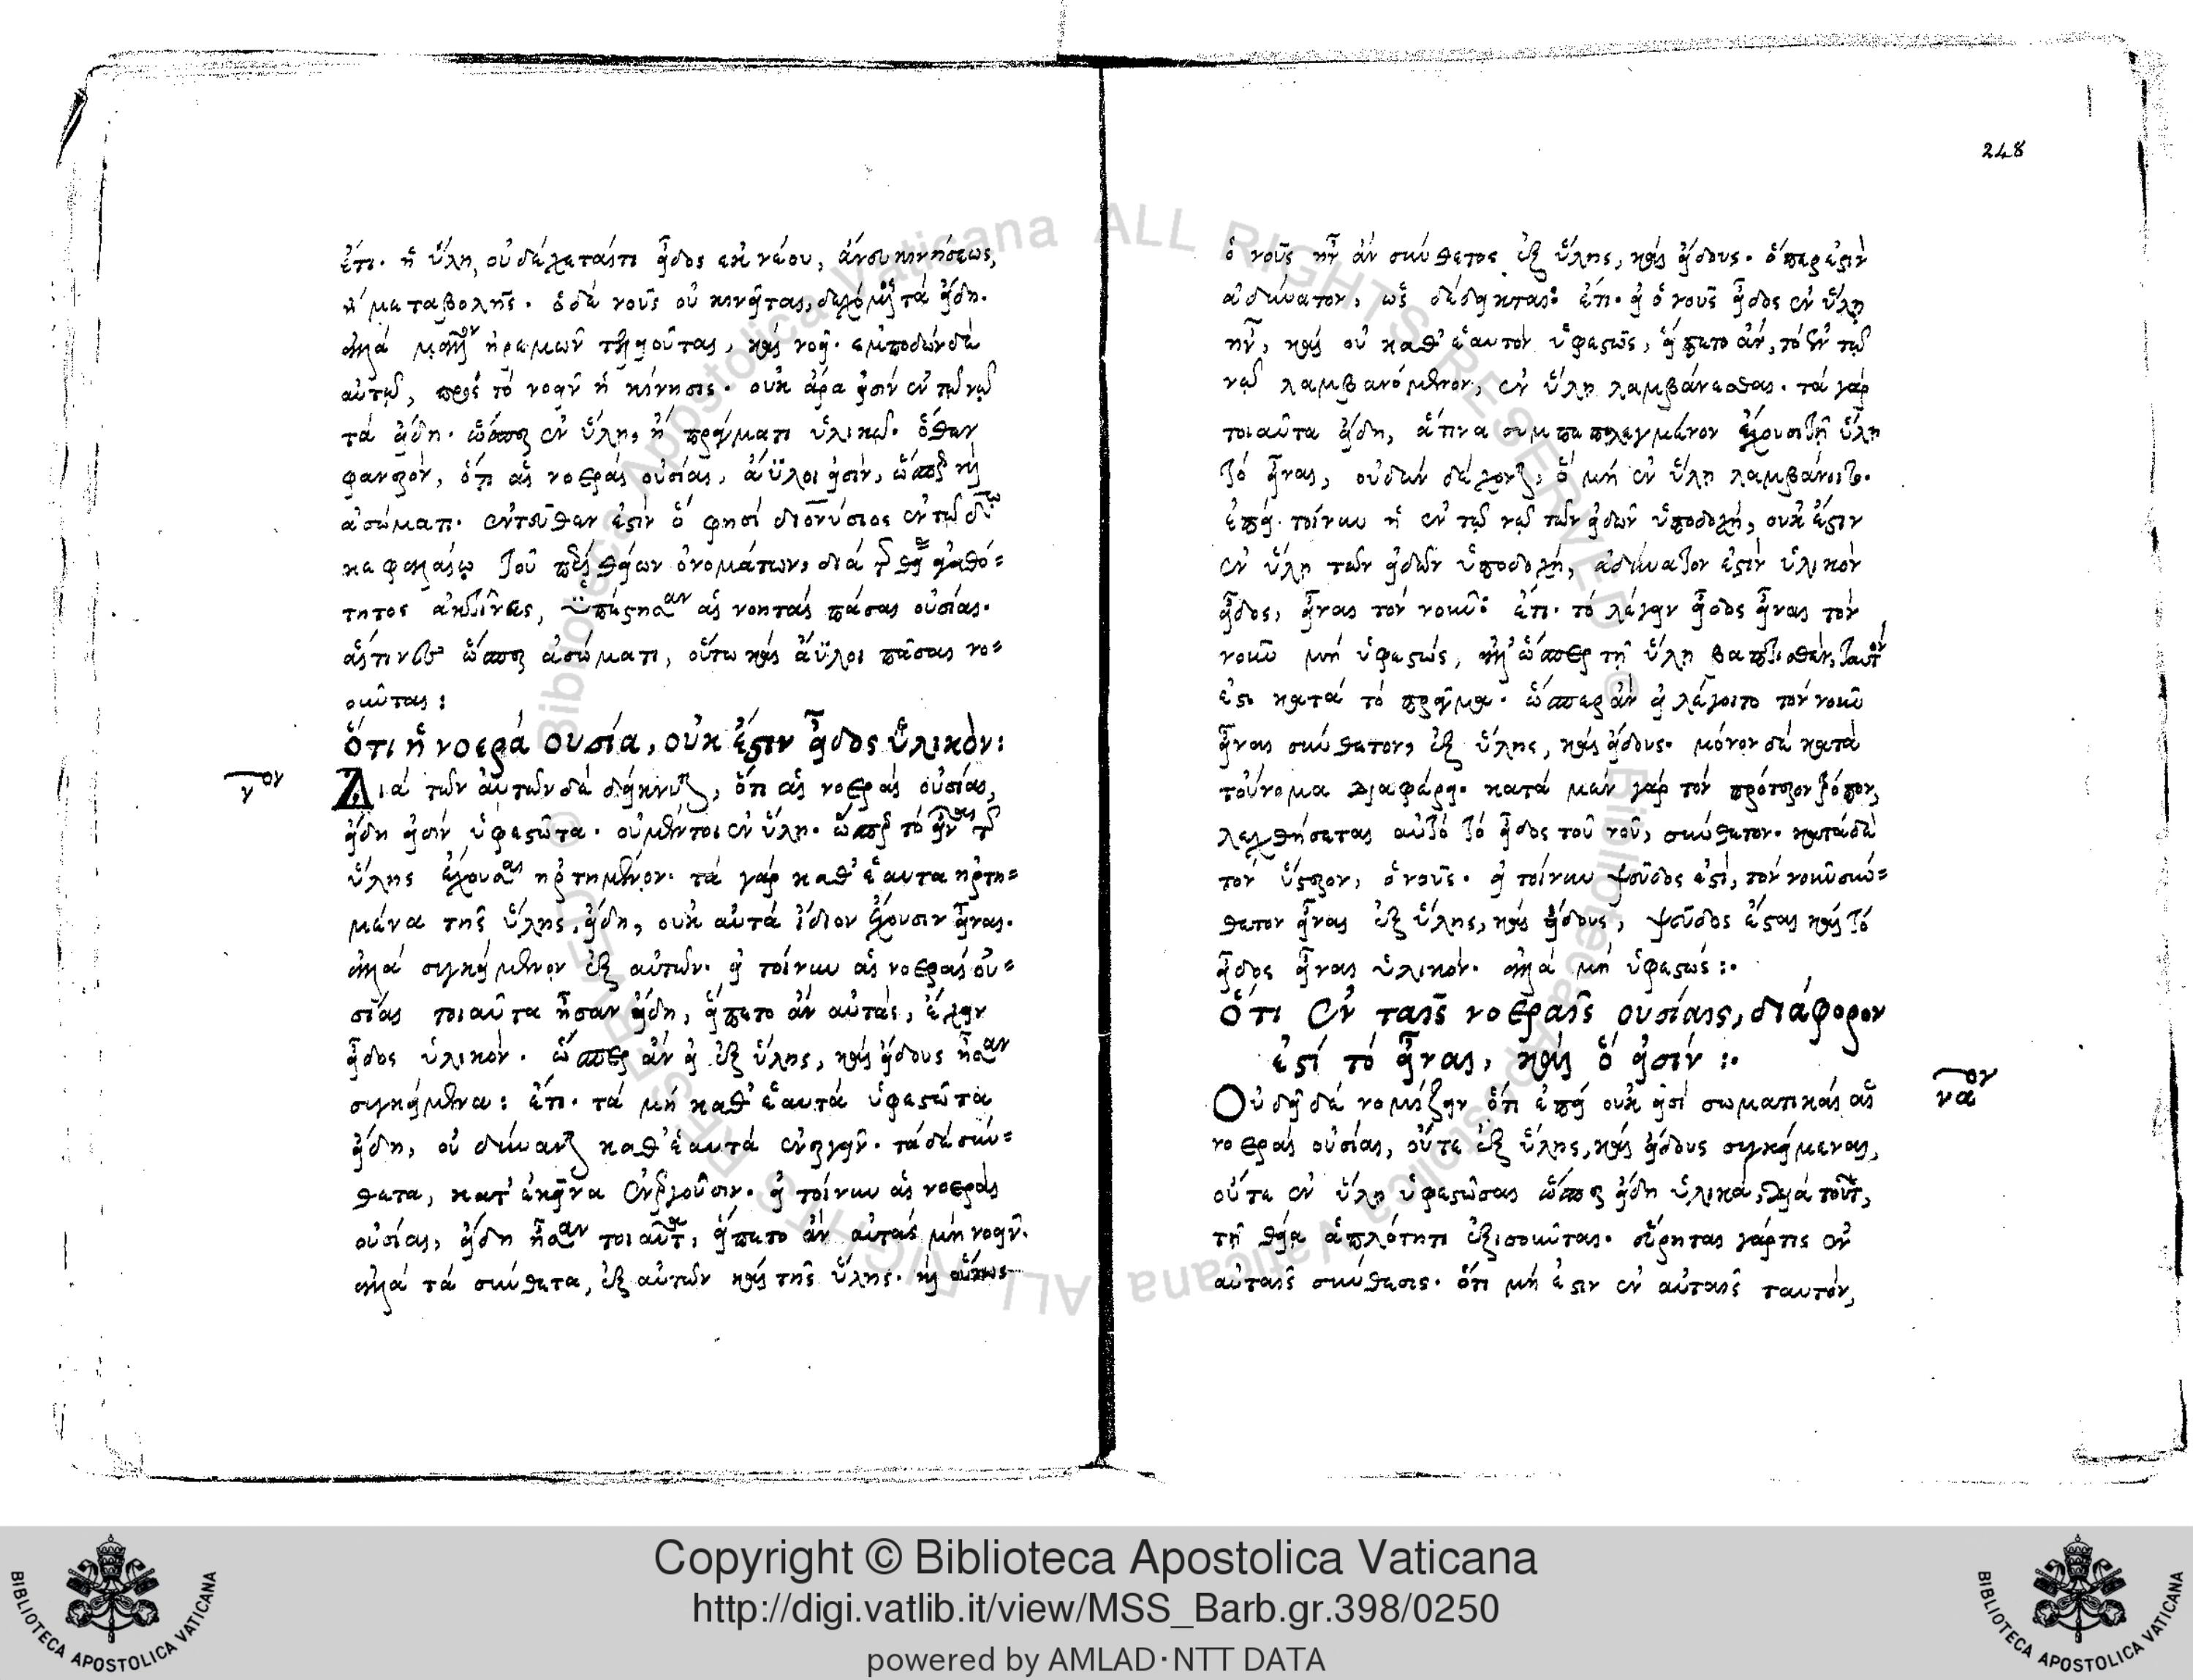 248
ἔτι· ἡ ὕλη, οὐ δέχεταί τι εἶδος ἐκ νέου, ἄνευ κινήσεως,
ἢ μεταβολῆς. ὁ δὲ νοῦς οὐ κινεῖται, δεχόμενος τὰ εἴδη.
ἀλλὰ μᾶλλον ἠρεμῶν τελειοῦται, καὶ νοεῖ. ἐμποδὼν δὲ
αὐτῷ, πρὸς τὸ νοεῖν ἡ κίνησις. οὐκ ἄρα εἰσὶν ἐν τῷ νῷ
τὰ εἴδη. ὥσπερ ἐν ὕλῃ, ἢ πράγματι ὑλικῷ. ὅθεν
φανερόν, ὅτι αἱ νοεραὶ οὐσίαι, ἄϋλοί εἰσιν, ὥσπερ καὶ
ἀσώματοι. ἐντεῦθέν ἐστιν ὅ φησι διονύσιος ἐν τῷ δῳ
κεφαλαίῳ τοῦ περὶ θείων ὀνομάτων, διὰ τῆς θείας ἀγαθό=
τητος ἀκτῖνας, ὑπέστησαν αἱ νοηταὶ πᾶσαι οὐσίαι.
αἵτινες ὥσπερ ἀσώματοι, οὕτω καὶ ἄϋλοι πᾶσαι νο=
οῦνται:
ὅτι ἡ νοερὰ οὐσία, οὐκ ἔστιν εἶδος ὑλικόν:
νον
Διὰ τῶν αὐτῶν δὲ δείκνυται, ὅτι αἱ νοεραὶ οὐσίαι,
εἴδη εἰσὶν ὑφεστῶτα. οὐ μέντοι ἐν ὕλῃ. ὥσπερ τὸ εἶναι τῆς
ὕλης ἔχουσαι ἠρτημένον. τὰ γὰρ καθ' ἑαυτὰ ἠρτη=
μένα τῆς ὕλης εἴδη, οὐκ αὐτὰ ἴδιον ἔχουσιν εἶναι.
ἀλλὰ συγκείμενον ἐξ αὐτῶν. εἰ τοίνυν αἱ νοεραὶ οὐ=
σίαι τοιαῦτα ἦσαν εἴδη, εἵπετο ἂν αὐτάς, ἔχειν
εἶδος ὑλικόν. ὥσπερ ἂν εἰ ἐξ ὕλης, καὶ εἴδους ἦσαν
συγκείμεναι: ἔτι· τὰ μὴ καθ' ἑαυτὰ ὑφεστῶτα
εἴδη, οὐ δύναται καθ' ἑαυτὰ ἐνεργεῖν. τὰ δὲ σύν=
θετα, κατ' ἐκεῖνα ἐνεργοῦσιν. εἰ τοίνυν αἱ νοεραὶ
οὐσίαι, εἴδη ἦσαν τοιαῦτα, εἵπετο ἂν αὐτὰς μὴ νοεῖν.
ἀλλὰ τὰ σύνθετα, ἐξ αὐτῶν καὶ τῆς ὕλης. καὶ οὕτως
ὁ νοῦς ἦν ἂν σύνθετος ἐξ ὕλης, καὶ εἴδους. ὅπερ ἐστὶν
ἀδύνατον, ὡς δέδεικται: ἔτι· εἰ ὁ νοῦς εἶδος ἐν ὕλῃ
ἦν, καὶ οὐ καθ' ἑαυτὸν ὑφεστώς, εἵπετο ἄν, τὸ ἐν τῷ
νῷ λαμβανόμενον, ἐν ὕλῃ λαμβάνεσθαι. τὰ γὰρ
τοιαῦτα εἴδη, ἅτινα συμπεπλεγμένον ἔχουσι τῇ ὕλῃ
τὸ εἶναι, οὐδὲν δέχονται, ὃ μὴ ἐν ὕλῃ λαμβάνοιτο.
ἐπεὶ τοίνυν ἡ ἐν τῷ νῷ τῶν εἰδῶν ὑποδοχή, οὐκ ἔστιν
ἐν ὕλῃ τῶν εἰδῶν ὑποδοχή, ἀδύνατόν ἐστιν ὑλικὸν
εἶδος, εἶναι τὸν νοῦν: ἔτι· τὸ λέγειν εἶδος εἶναι τὸν
νοῦν μὴ ὑφεστώς, ἀλλ' ὥσπερ τῇ ὕλῃ βαπτισθέν, ταυτόν
ἐστι κατὰ τὸ πρᾶγμα. ὥσπερ ἂν εἰ λέγοιτο τὸν νοῦν
εἶναι σύνθετον, ἐξ ὕλης, καὶ εἴδους. μόνον δὲ κατὰ
τοὔνομα διαφέρει. κατὰ μὲν γὰρ τὸν πρότερον τρόπον,
λεχθήσεται αὐτὸ τὸ εἶδος τοῦ νοῦ, σύνθετον. κατὰ δὲ
τὸν ὕστερον, ὁ νοῦς. εἰ τοίνυν ψεῦδός ἐστι, τὸν νοῦν σύν=
θετον εἶναι ἐξ ὕλης, καὶ εἴδους, ψεῦδος ἔσται καὶ τὸ
εἶδος εἶναι ὑλικόν. ἀλλὰ μὴ ὑφεστώς:.
Ὅτι ἐν ταῖς νοεραῖς οὐσίαις, διάφορόν
ἐστι τὸ εἶναι, καὶ ὅ εἰσιν:.
ναον
Οὐ δεῖ δὲ νομίζειν ὅτι ἐπεὶ οὐκ εἰσὶ σωματικαὶ αἱ
νοεραὶ οὐσίαι, οὔτε ἐξ ὕλης, καὶ εἴδους συγκείμεναι,
οὔτε ἐν ὕλῃ ὑφεστῶσαι ὥσπερ εἴδη ὑλικά, διὰ τοῦτο,
τῇ θείᾳ ἁπλότητι ἐξισοῦνται. εὕρηται γάρ τις ἐν
αὐταῖς σύνθεσις. ὅτι μή ἐστιν ἐν αὐταῖς ταυτόν,
Copyright © Biblioteca Apostolica Vaticana
http://digi.vatlib.it/view/MSS_Barb.gr.398/0250
powered by AMLAD·NTT DATA
BIBLIOTECA APOSTOLICA VATICANA
BIBLIOTECA APOSTOLICA VATICANA